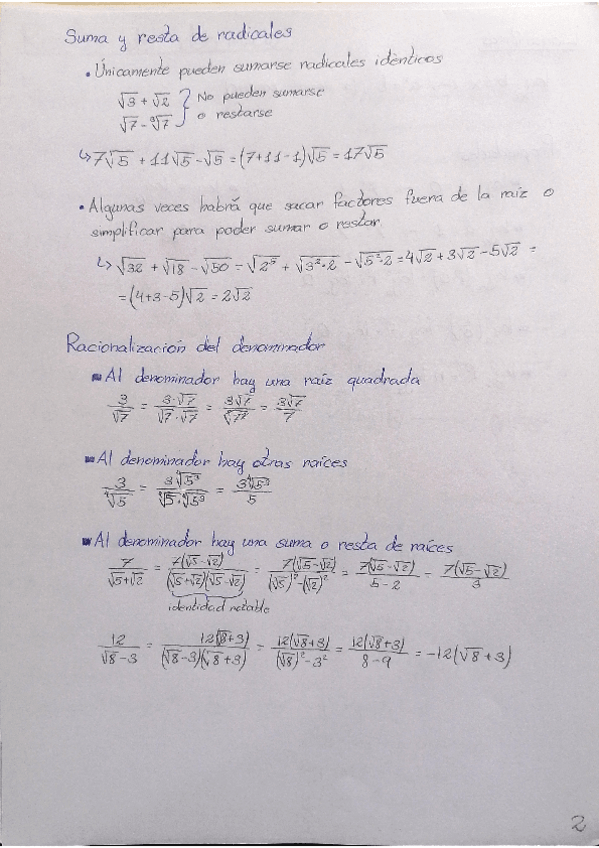 Suma y resta de radicales
• Únicamente pueden sumarse radicales idénticos
√3 + √2 } No pueden sumarse
√7 - ³√7 } o restarse
↳ 7√5 + 11√5 - √5 = (7+11-1)√5 = 17√5
• Algunas veces habrá que sacar factores fuera de la raíz o
simplificar para poder sumar o restar
↳ √32 + √18 - √50 = √2⁵ + √3²·2 - √5²·2 = 4√2 + 3√2 - 5√2 =
= (4+3-5)√2 = 2√2
Racionalización del denominador
▪ Al denominador hay una raíz quadrada
3/√7 = 3·√7/√7·√7 = 3√7/√7² = 3√7/7
▪ Al denominador hay otras raíces
3/⁴√5 = 3⁴√5³/⁴√5·⁴√5³ = 3⁴√5³/5
▪ Al denominador hay una suma o resta de raíces
7/√5+√2 = 7(√5-√2)/(√5+√2)(√5-√2) = 7(√5-√2)/(√5)²-(√2)² = 7(√5-√2)/5-2 = 7(√5-√2)/3
identidad notable
12/√8-3 = 12(√8+3)/(√8-3)(√8+3) = 12(√8+3)/(√8)²-3² = 12(√8+3)/8-9 = -12(√8+3)
2